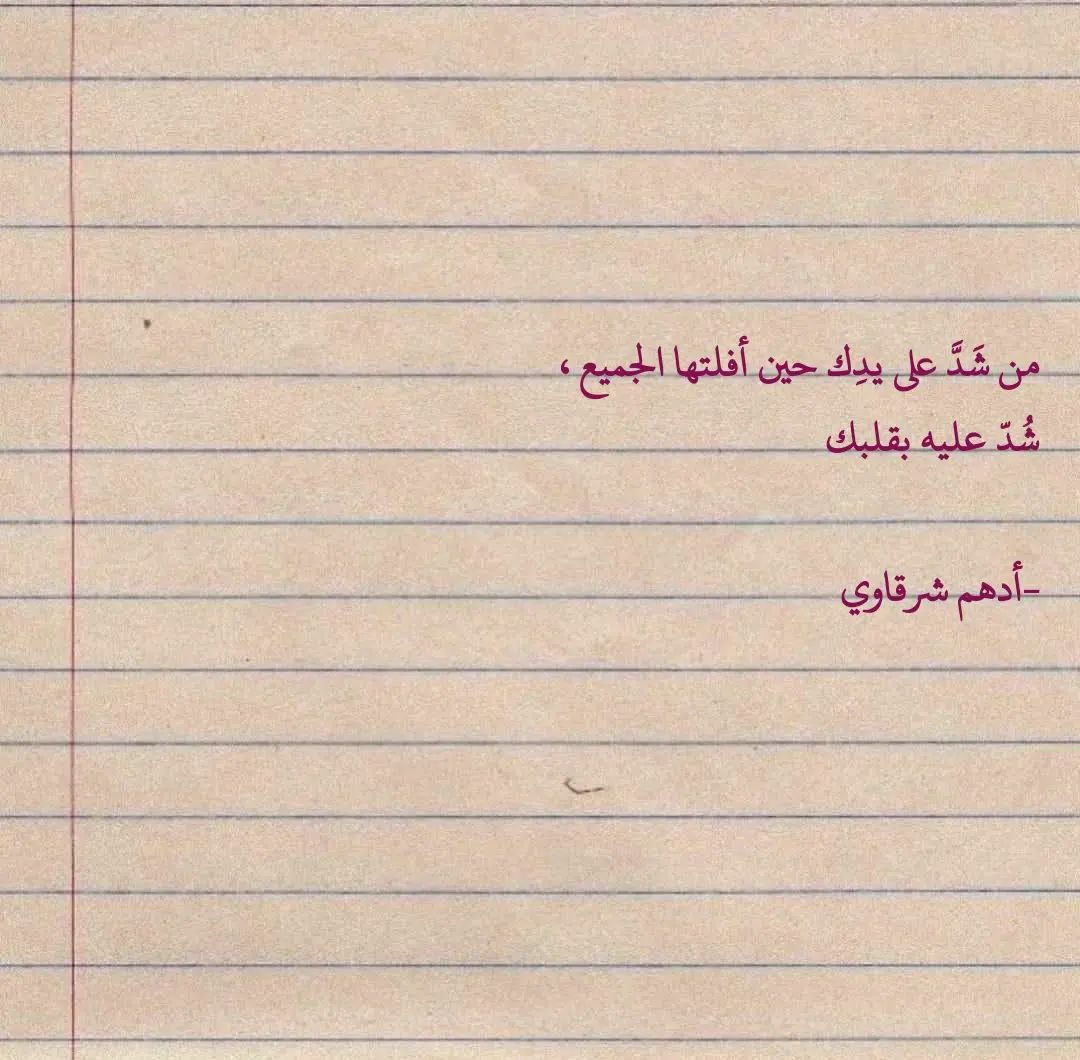 من شَدَّ على يدِك حين أفلتها الجميع ،
شُدّ عليه بقلبك
-أدهم شرقاوي